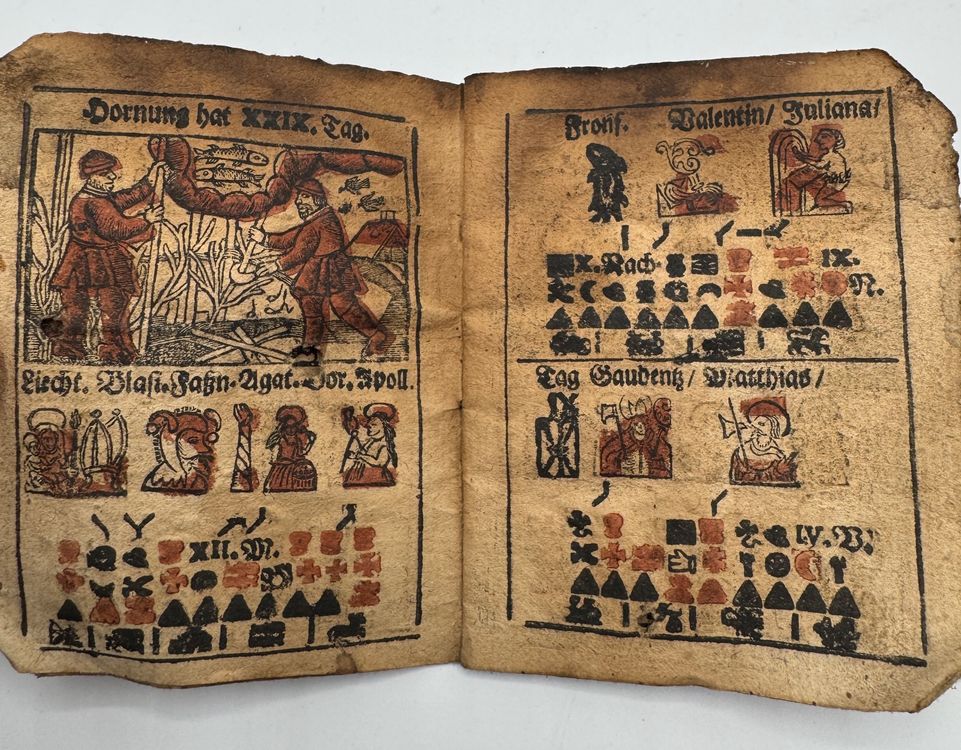 Hornung hat XXIX. Tag.
Liecht. Blasi. Faßn. Agat. Dor. Apoll.
XII. M.
Fronf. Valentin/ Juliana/
X. Nach IX.
N.
Tag Gaudentz/ Matthias/
IV. W.